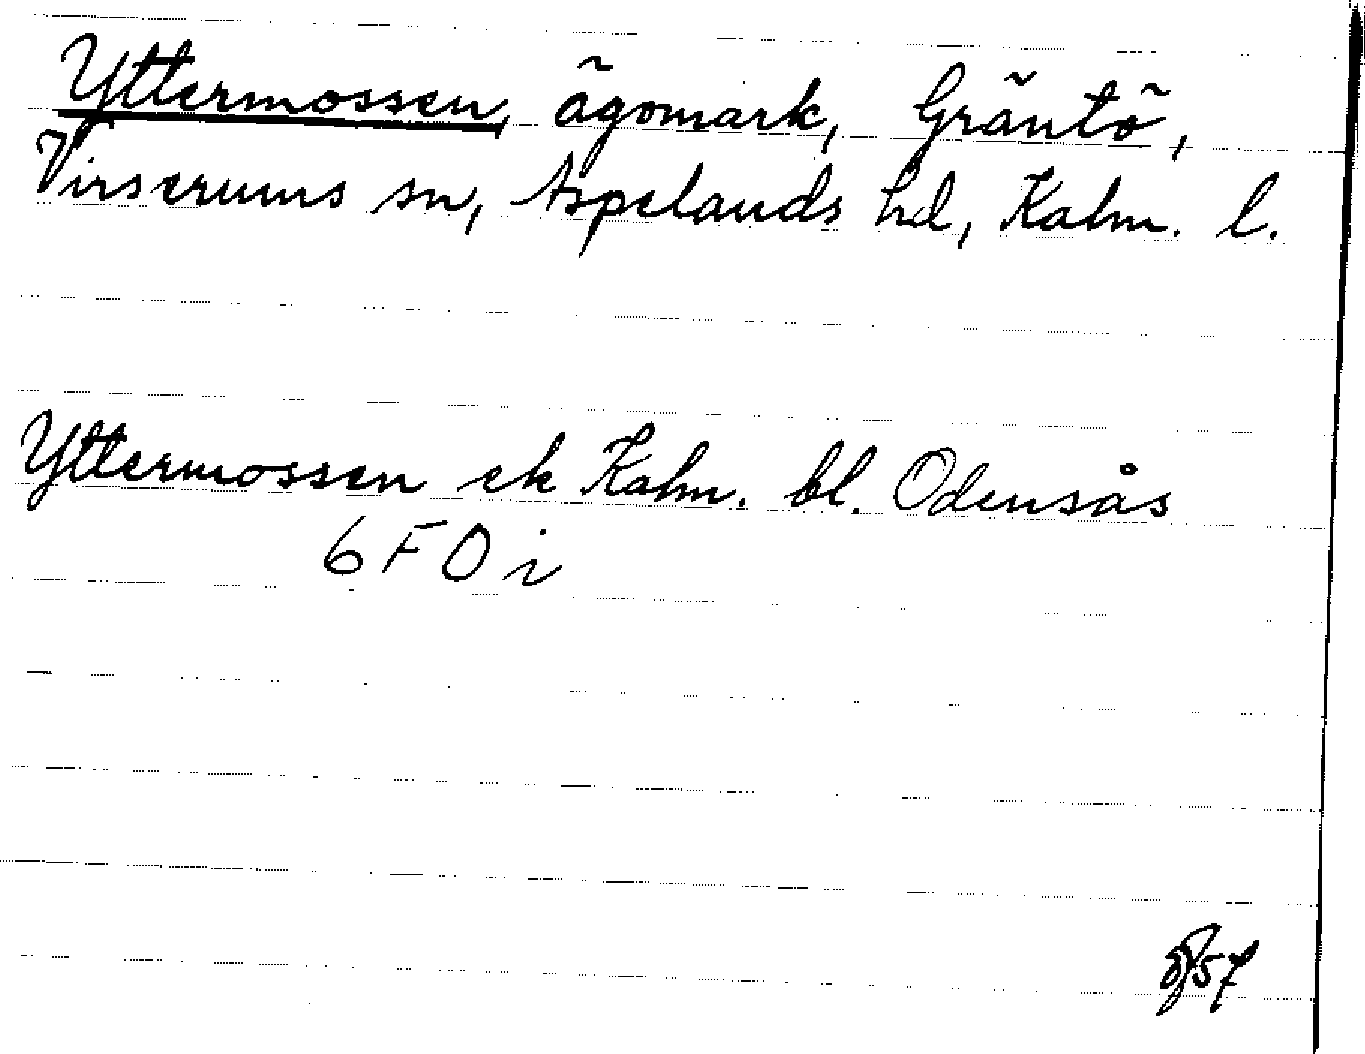 Yttermossen, ägomark, Gräntö,
Virserums sn, Aspelands hd, Kalm. l.
Yttermossen ek Kalm. bl. Odensås
6 F 0 i
57